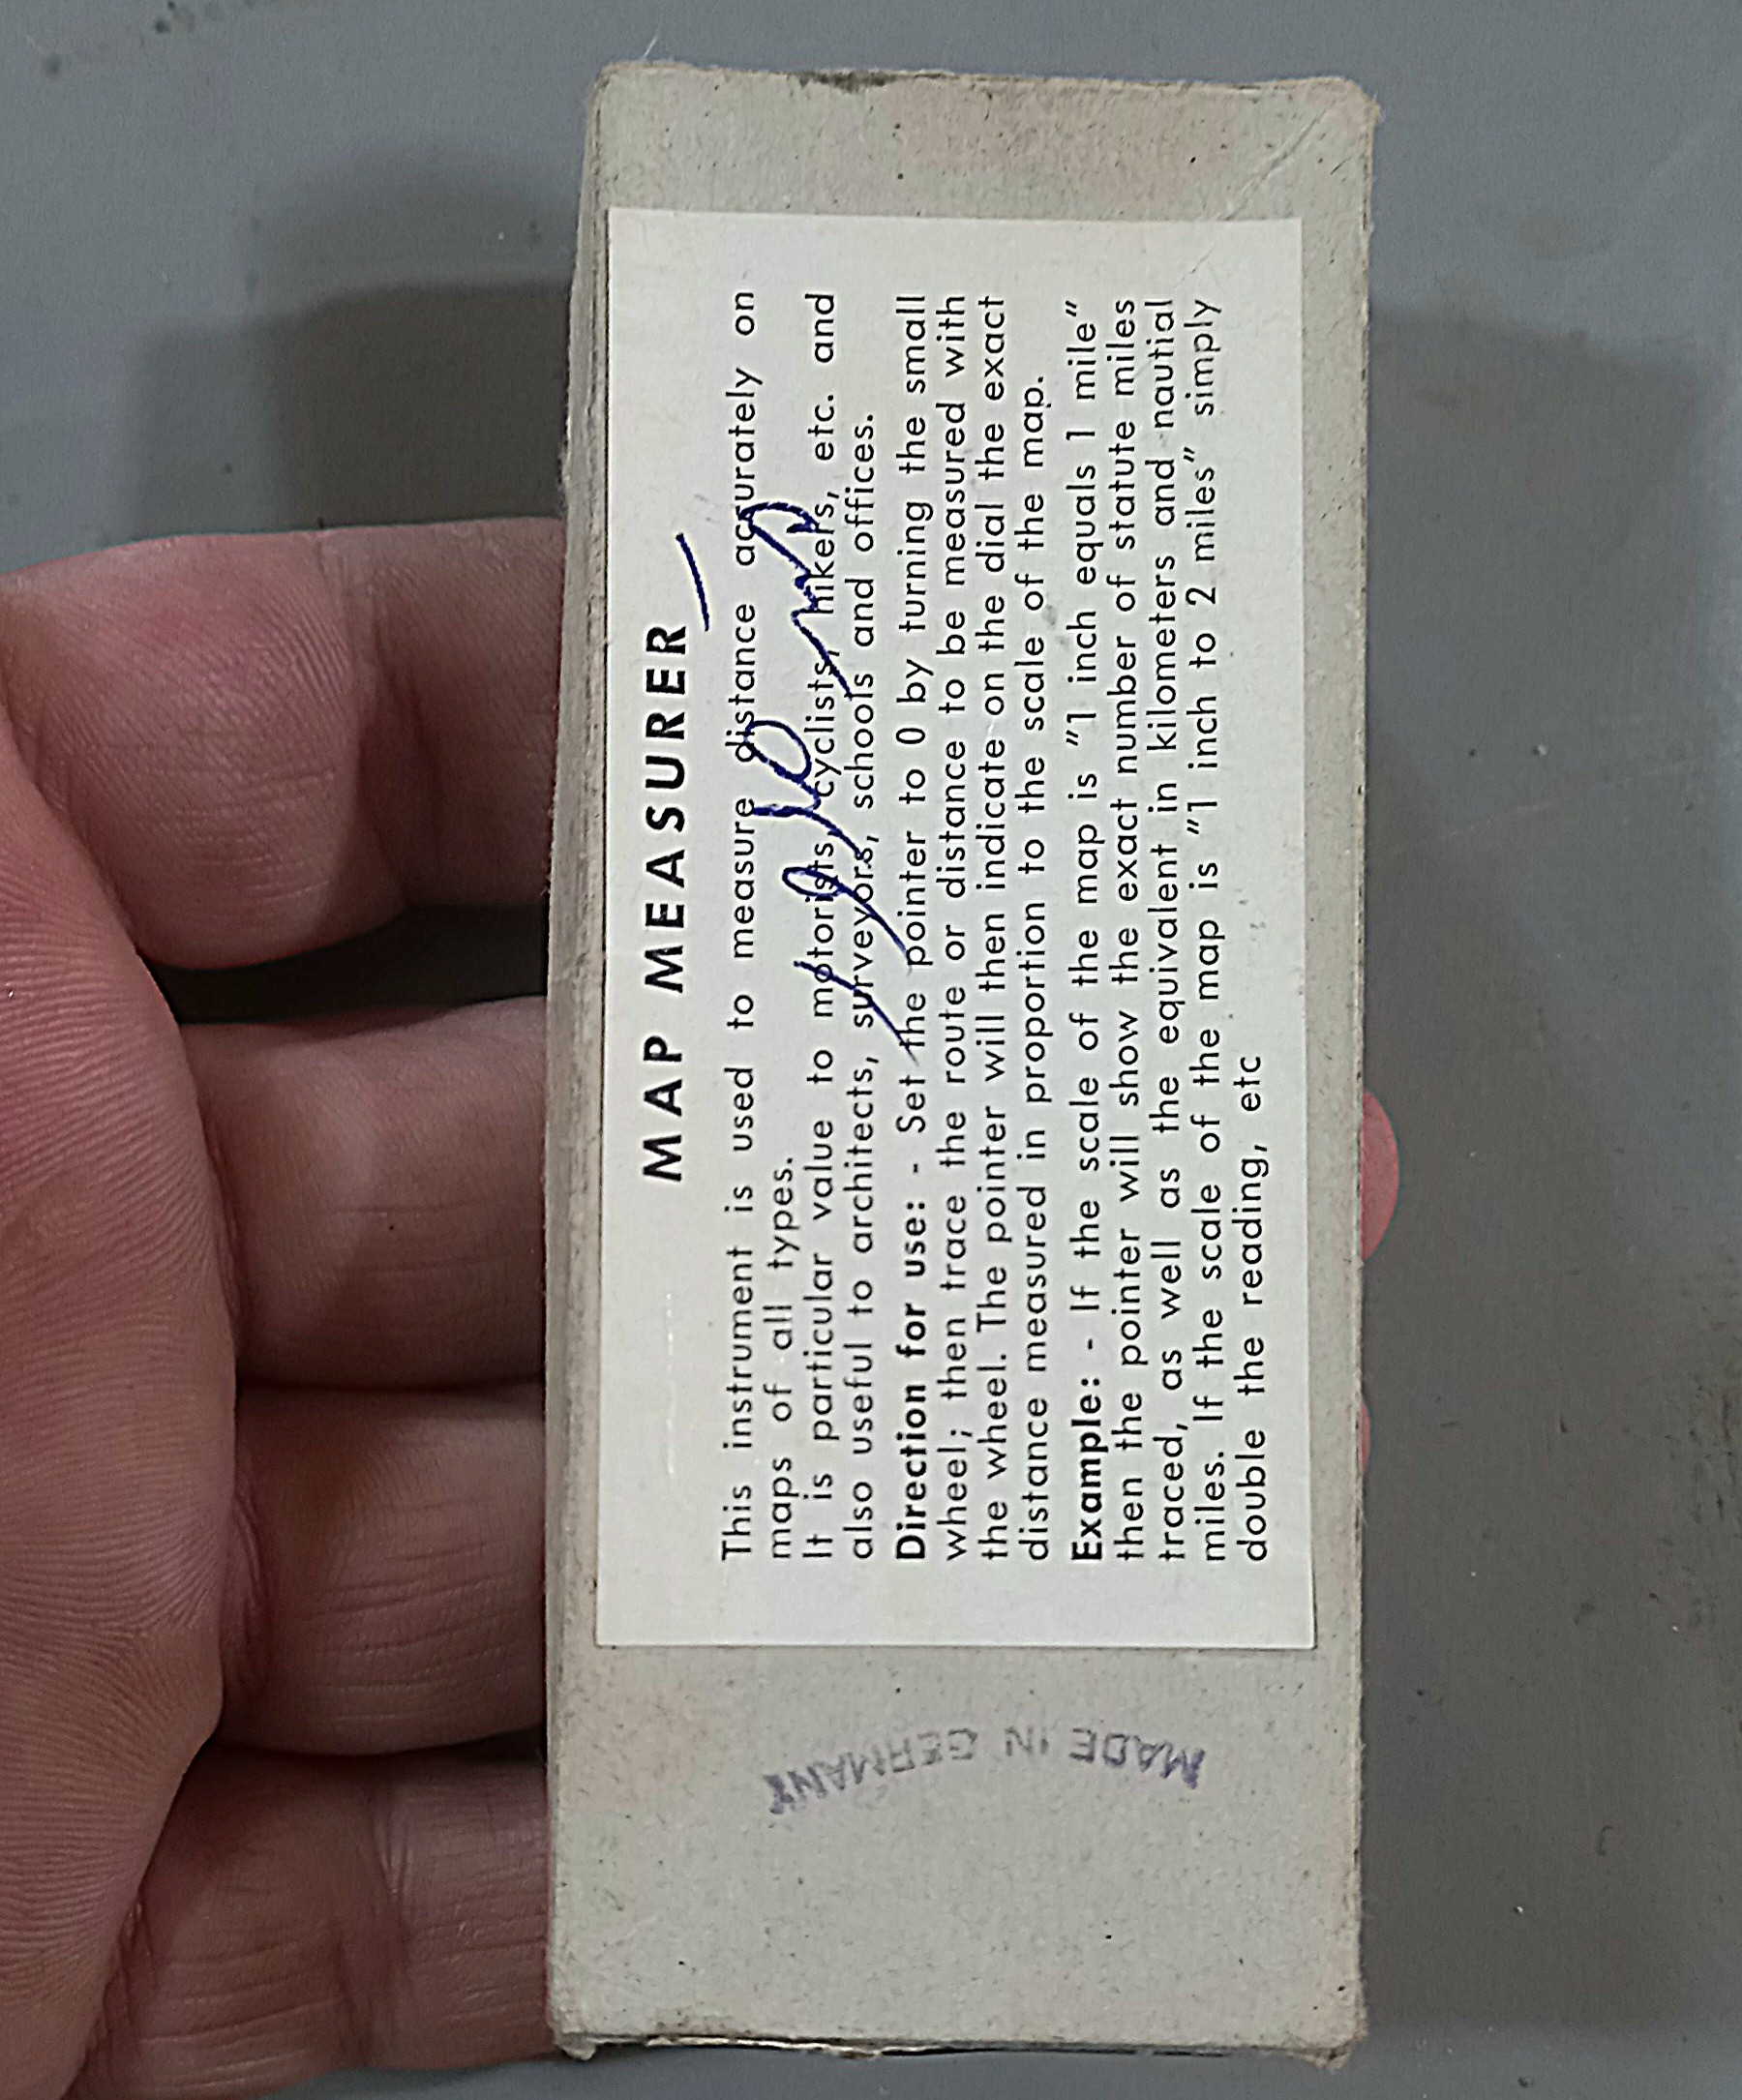 MAP MEASURER
This instrument is used to measure distance accurately on
maps of all types.
It is particular value to motorists, cyclists, hikers, etc. and
also useful to architects, surveyors, schools and offices.
Direction for use: - Set the pointer to 0 by turning the small
wheel; then trace the route or distance to be measured with
the wheel. The pointer will then indicate on the dial the exact
distance measured in proportion to the scale of the map.
Example: - If the scale of the map is "1 inch equals 1 mile"
then the pointer will show the exact number of statute miles
traced, as well as the equivalent in kilometers and nautial
miles. If the scale of the map is "1 inch to 2 miles" simply
double the reading, etc
MADE IN GERMANY